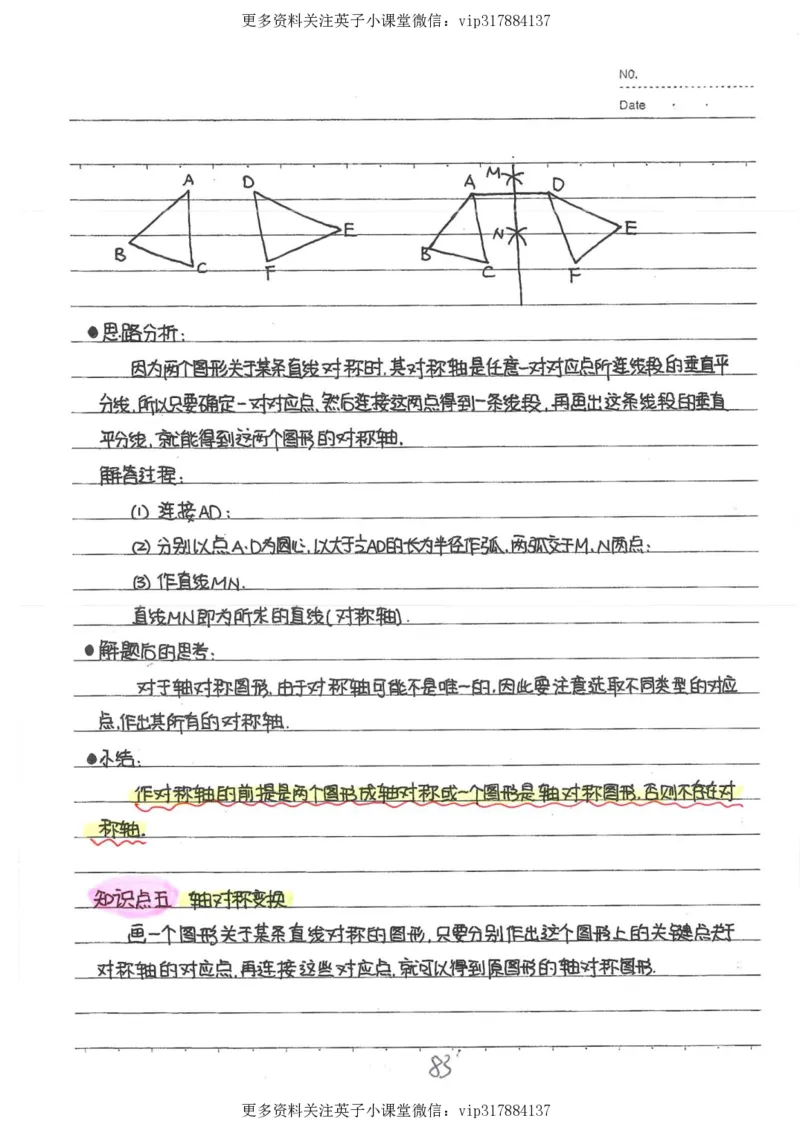 更多资料关注英子小课堂微信：vip317884137
NO.
Date
A D A M D
B C F E B C N F E
●思路分析：
因为两个图形关于某条直线对称时，其对称轴是任意一对对应点所连线段的垂直平
分线，所以只要确定一对对应点，然后连接这两点得到一条线段，再画出这条线段的垂直
平分线，就能得到这两个图形的对称轴.
解答过程：
(1) 连接AD；
(2) 分别以点A、D为圆心，以大于½AD的长为半径作弧，两弧交于M、N两点；
(3) 作直线MN.
直线MN即为所求的直线(对称轴).
●解题后的思考：
对于轴对称图形，由于对称轴可能不是唯一的，因此要注意选取不同类型的对应
点，作出其所有的对称轴.
●小结：
作对称轴的前提是两个图形成轴对称或一个图形是轴对称图形，否则不存在对
称轴.
知识点五 轴对称变换
画一个图形关于某条直线对称的图形，只要分别作出这个图形上的关键点关于
对称轴的对应点，再连接这些对应点，就可以得到原图形的轴对称图形.
83
更多资料关注英子小课堂微信：vip317884137